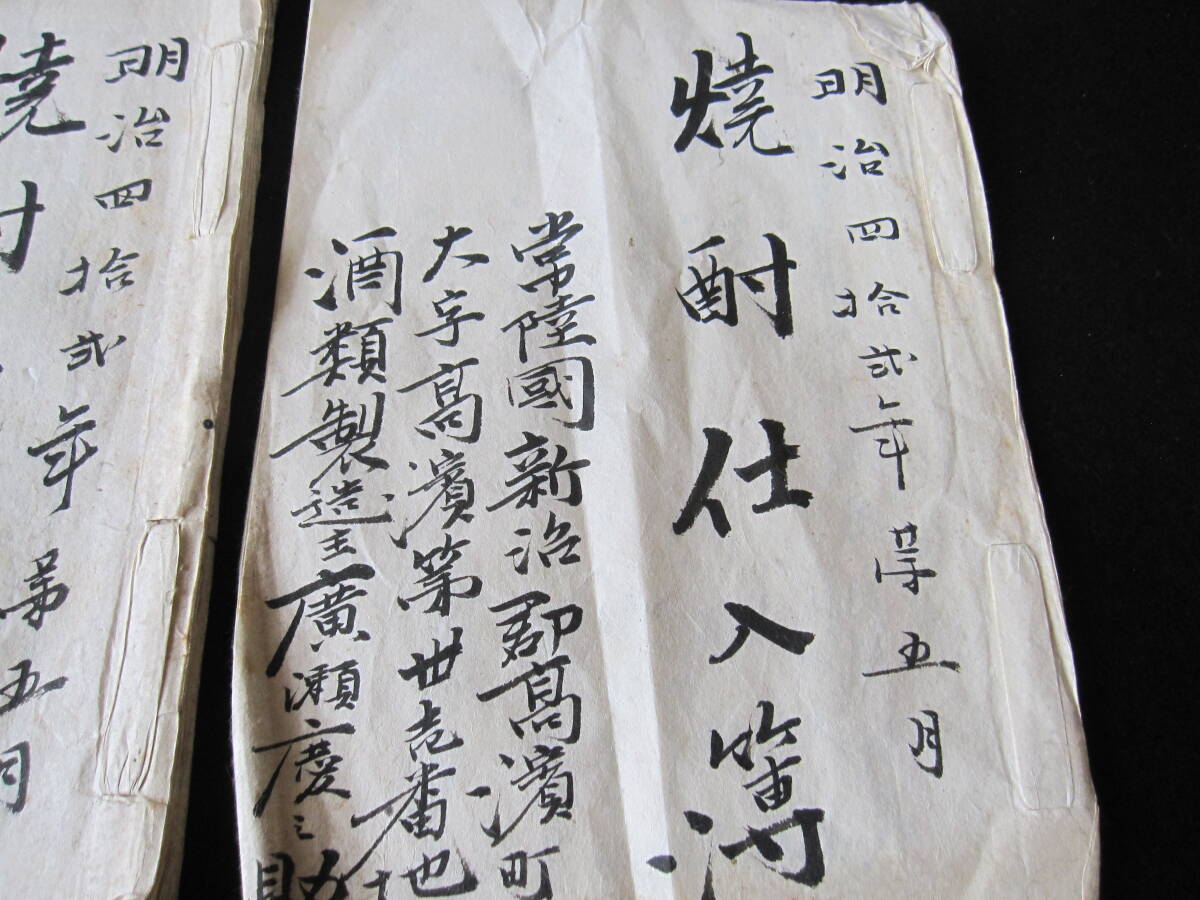 明治四拾弐年第五月
焼酎仕入簿
常陸國新治郡高濱町
大字高濱第卅壱番地
酒類製造主廣瀬慶之助
明治四拾弐年第五月
焼酎